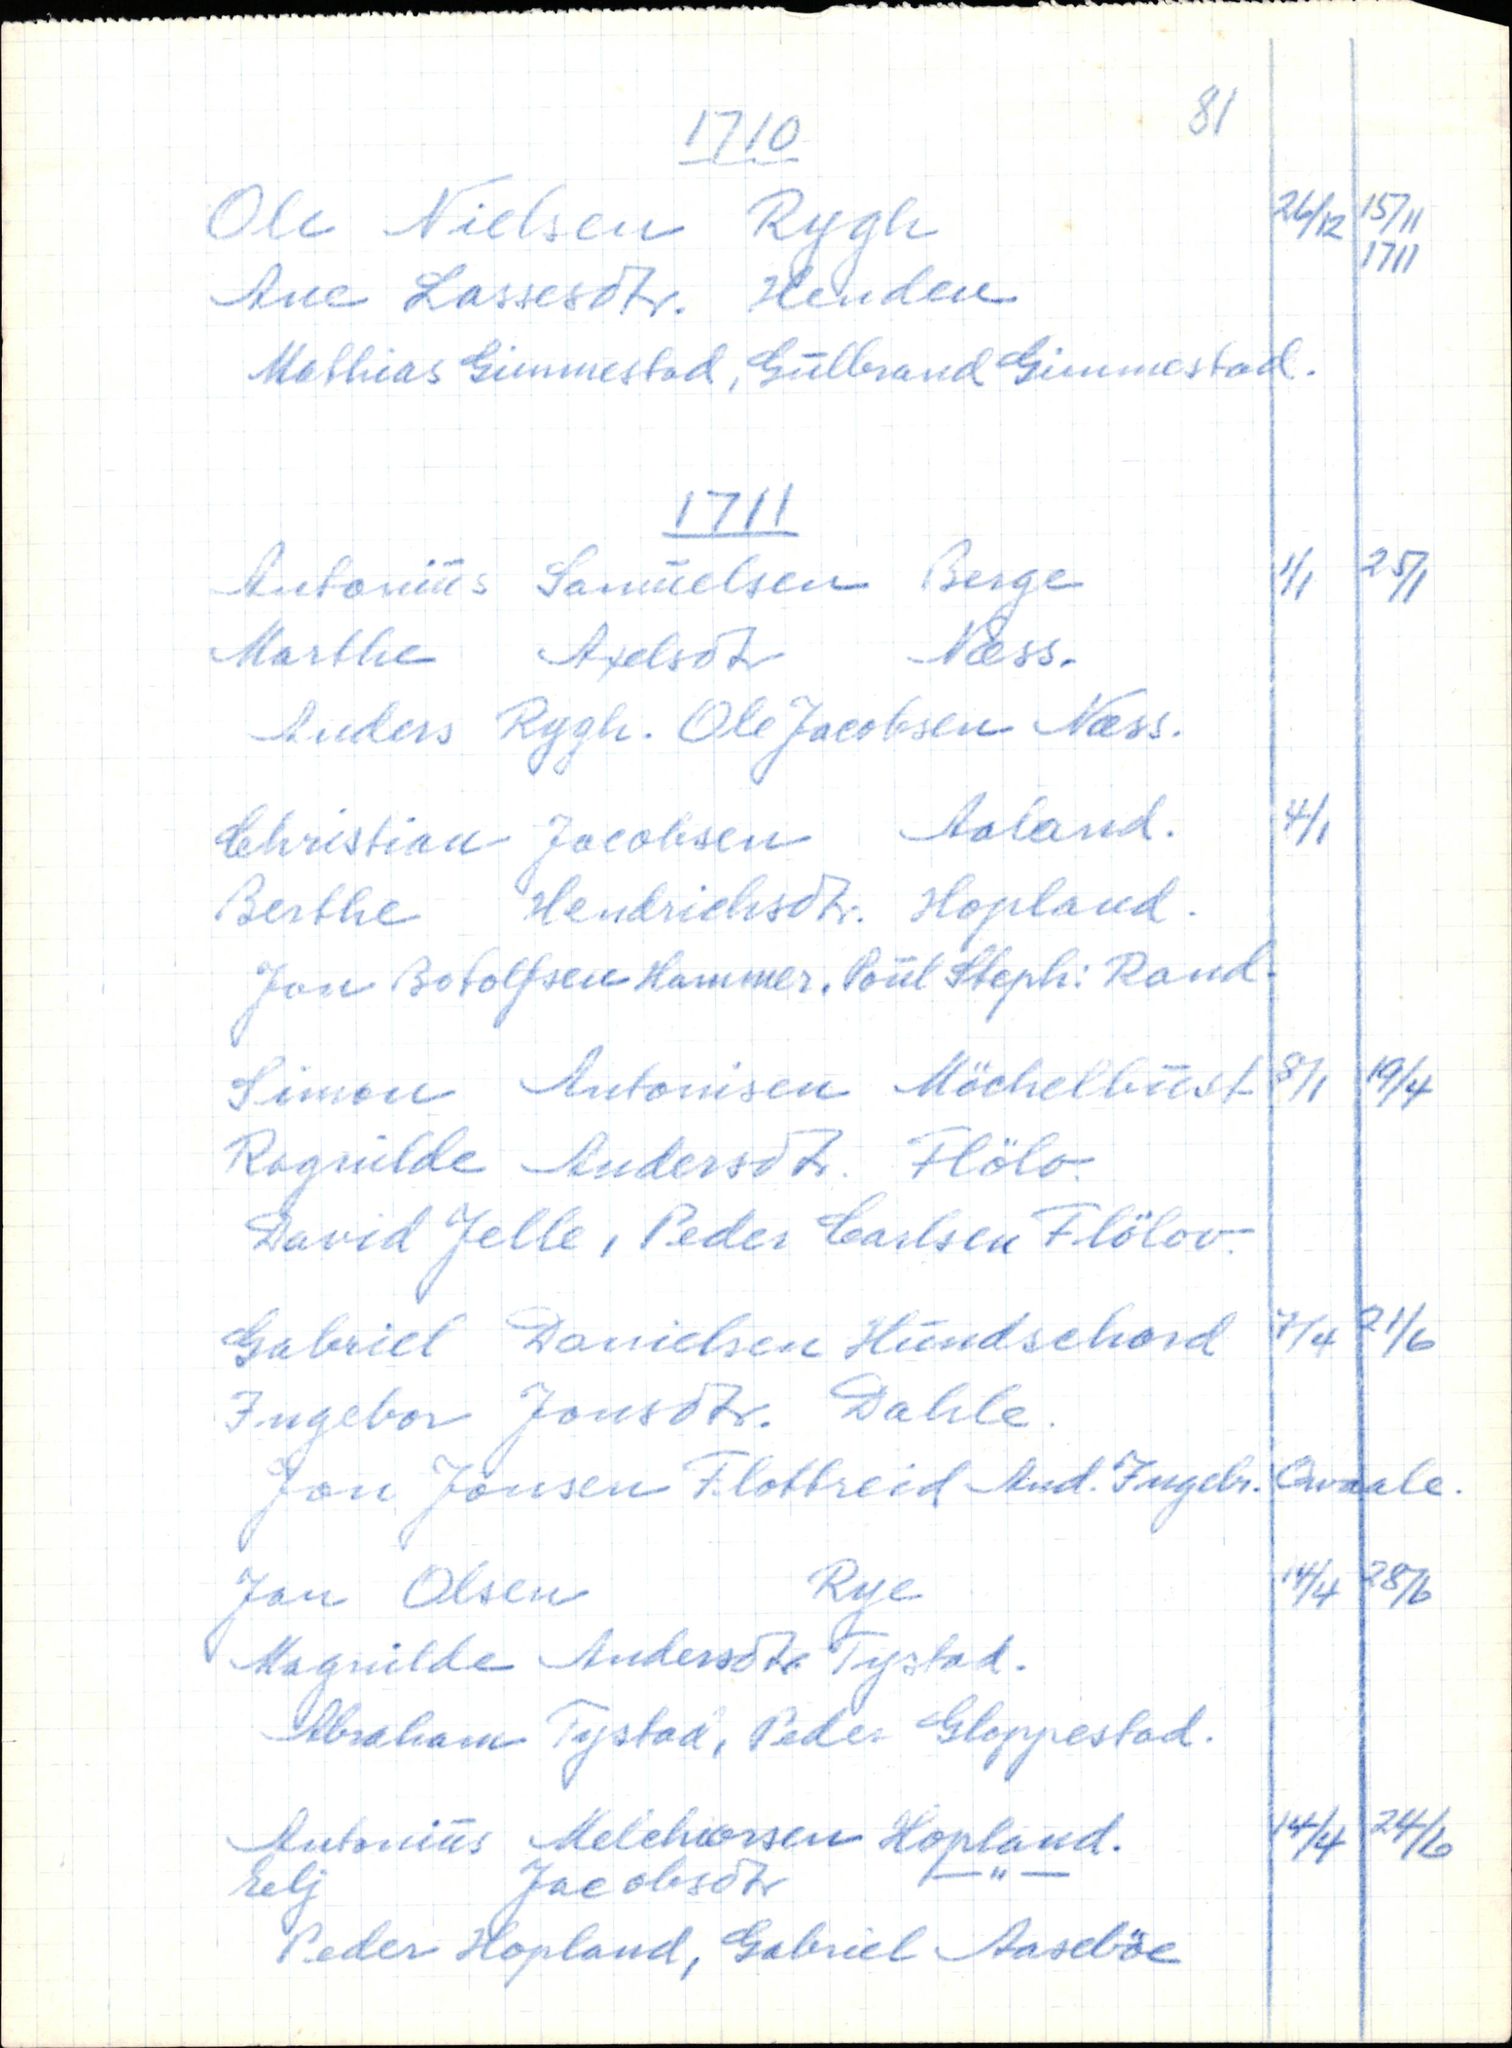 81
1710
Ole Nielsen Rygh 26/12 15/11
1711
Ane Lassesdtr. Henden
Mathias Gimmestad, Gülbrand Gimmestad.
1711
Antoniüs Samüelsen Berge 1/1 25/1
Marthe Axelsdtr Næss.
Anders Rygh. Ole Jacobsen Næss.
Christian Jacobsen Aaland. 4/1
Berthe Hendrichsdtr. Hopland.
Jon Botolfsen Hammer. Poül Steph: Rand.
Simon Antonisen Möchelbüst 8/1 19/4
Ragnilde Andersdtr. Flölo.
David Jelle, Peder Carlsen Flölov.
Gabriel Danielsen Hündschord 7/4 21/6
Ingebor Jonsdtr. Dahle.
Jon Jonsen Flottreid And. Ingebr. Qwaale.
Jon Olsen Rye 14/4 28/6
Magnilde Andersdtr Tystad.
Abraham Tystad, Peder Gloppestad.
Antoniüs Melchiorsen Hopland. 14/4 24/6
Eelj Jacobsdtr — " —
Peder Hopland, Gabriel Aaseböe